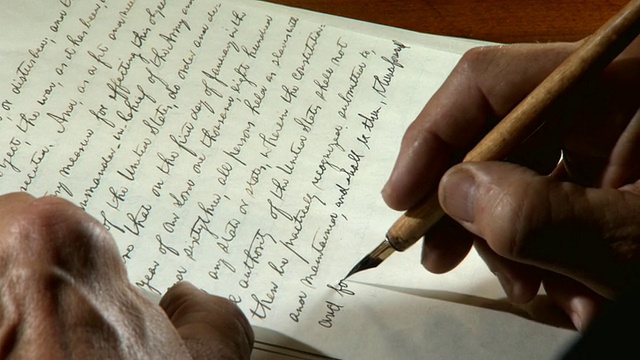 or disturbed, and
ject the war, as it has been,
And, as a fit and ne
y measure for effecting this objec
ommander-in-Chief of the Army an
of the United States, do order and de-
that on the first day of January in the
year of Our Lord one thousand, eight hundred
sixtythree, all persons held as slaves with
any state or states, wherein the constitution
authority of the United States shall not
then be practically recognized, submitted to,
and maintained, and shall then, thenceforward
and for